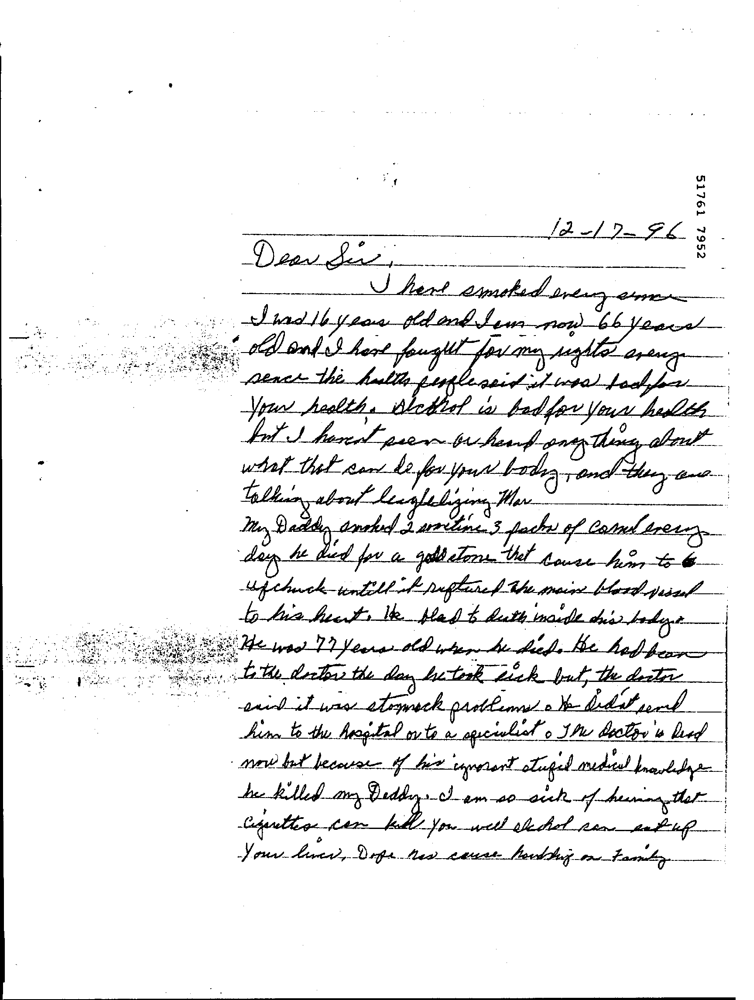 51761 7952
12-17-96
Dear Sir,
I have smoked every since
I was 16 years old and I am now 66 years
old and I have fought for my rights every
sence the health people said it was bad for
your health. Alcohol is bad for your health
but I haven't seen or heard anything about
what that can do for your body, and they are
talking about Mar
My Daddy smoked 2 3 packs of Camel every
day he died for a gallstone that cause him to
upchuck untill it ruptured the main blood vessel
to his heart. He blead to death inside his body.
He was 77 years old when he died. He had bean
to the doctor the day he took sick but, the doctor
said it was stomack problems. He did'nt send
him to the hospital or to a specialist. The doctor is dead
now but because of his ignorant stupid medical knowledge
he killed my Daddy. I am so sick of hearing that
cigarettes can kill you well alcohol can eat up
your liver, Dope has cause hardship on Family